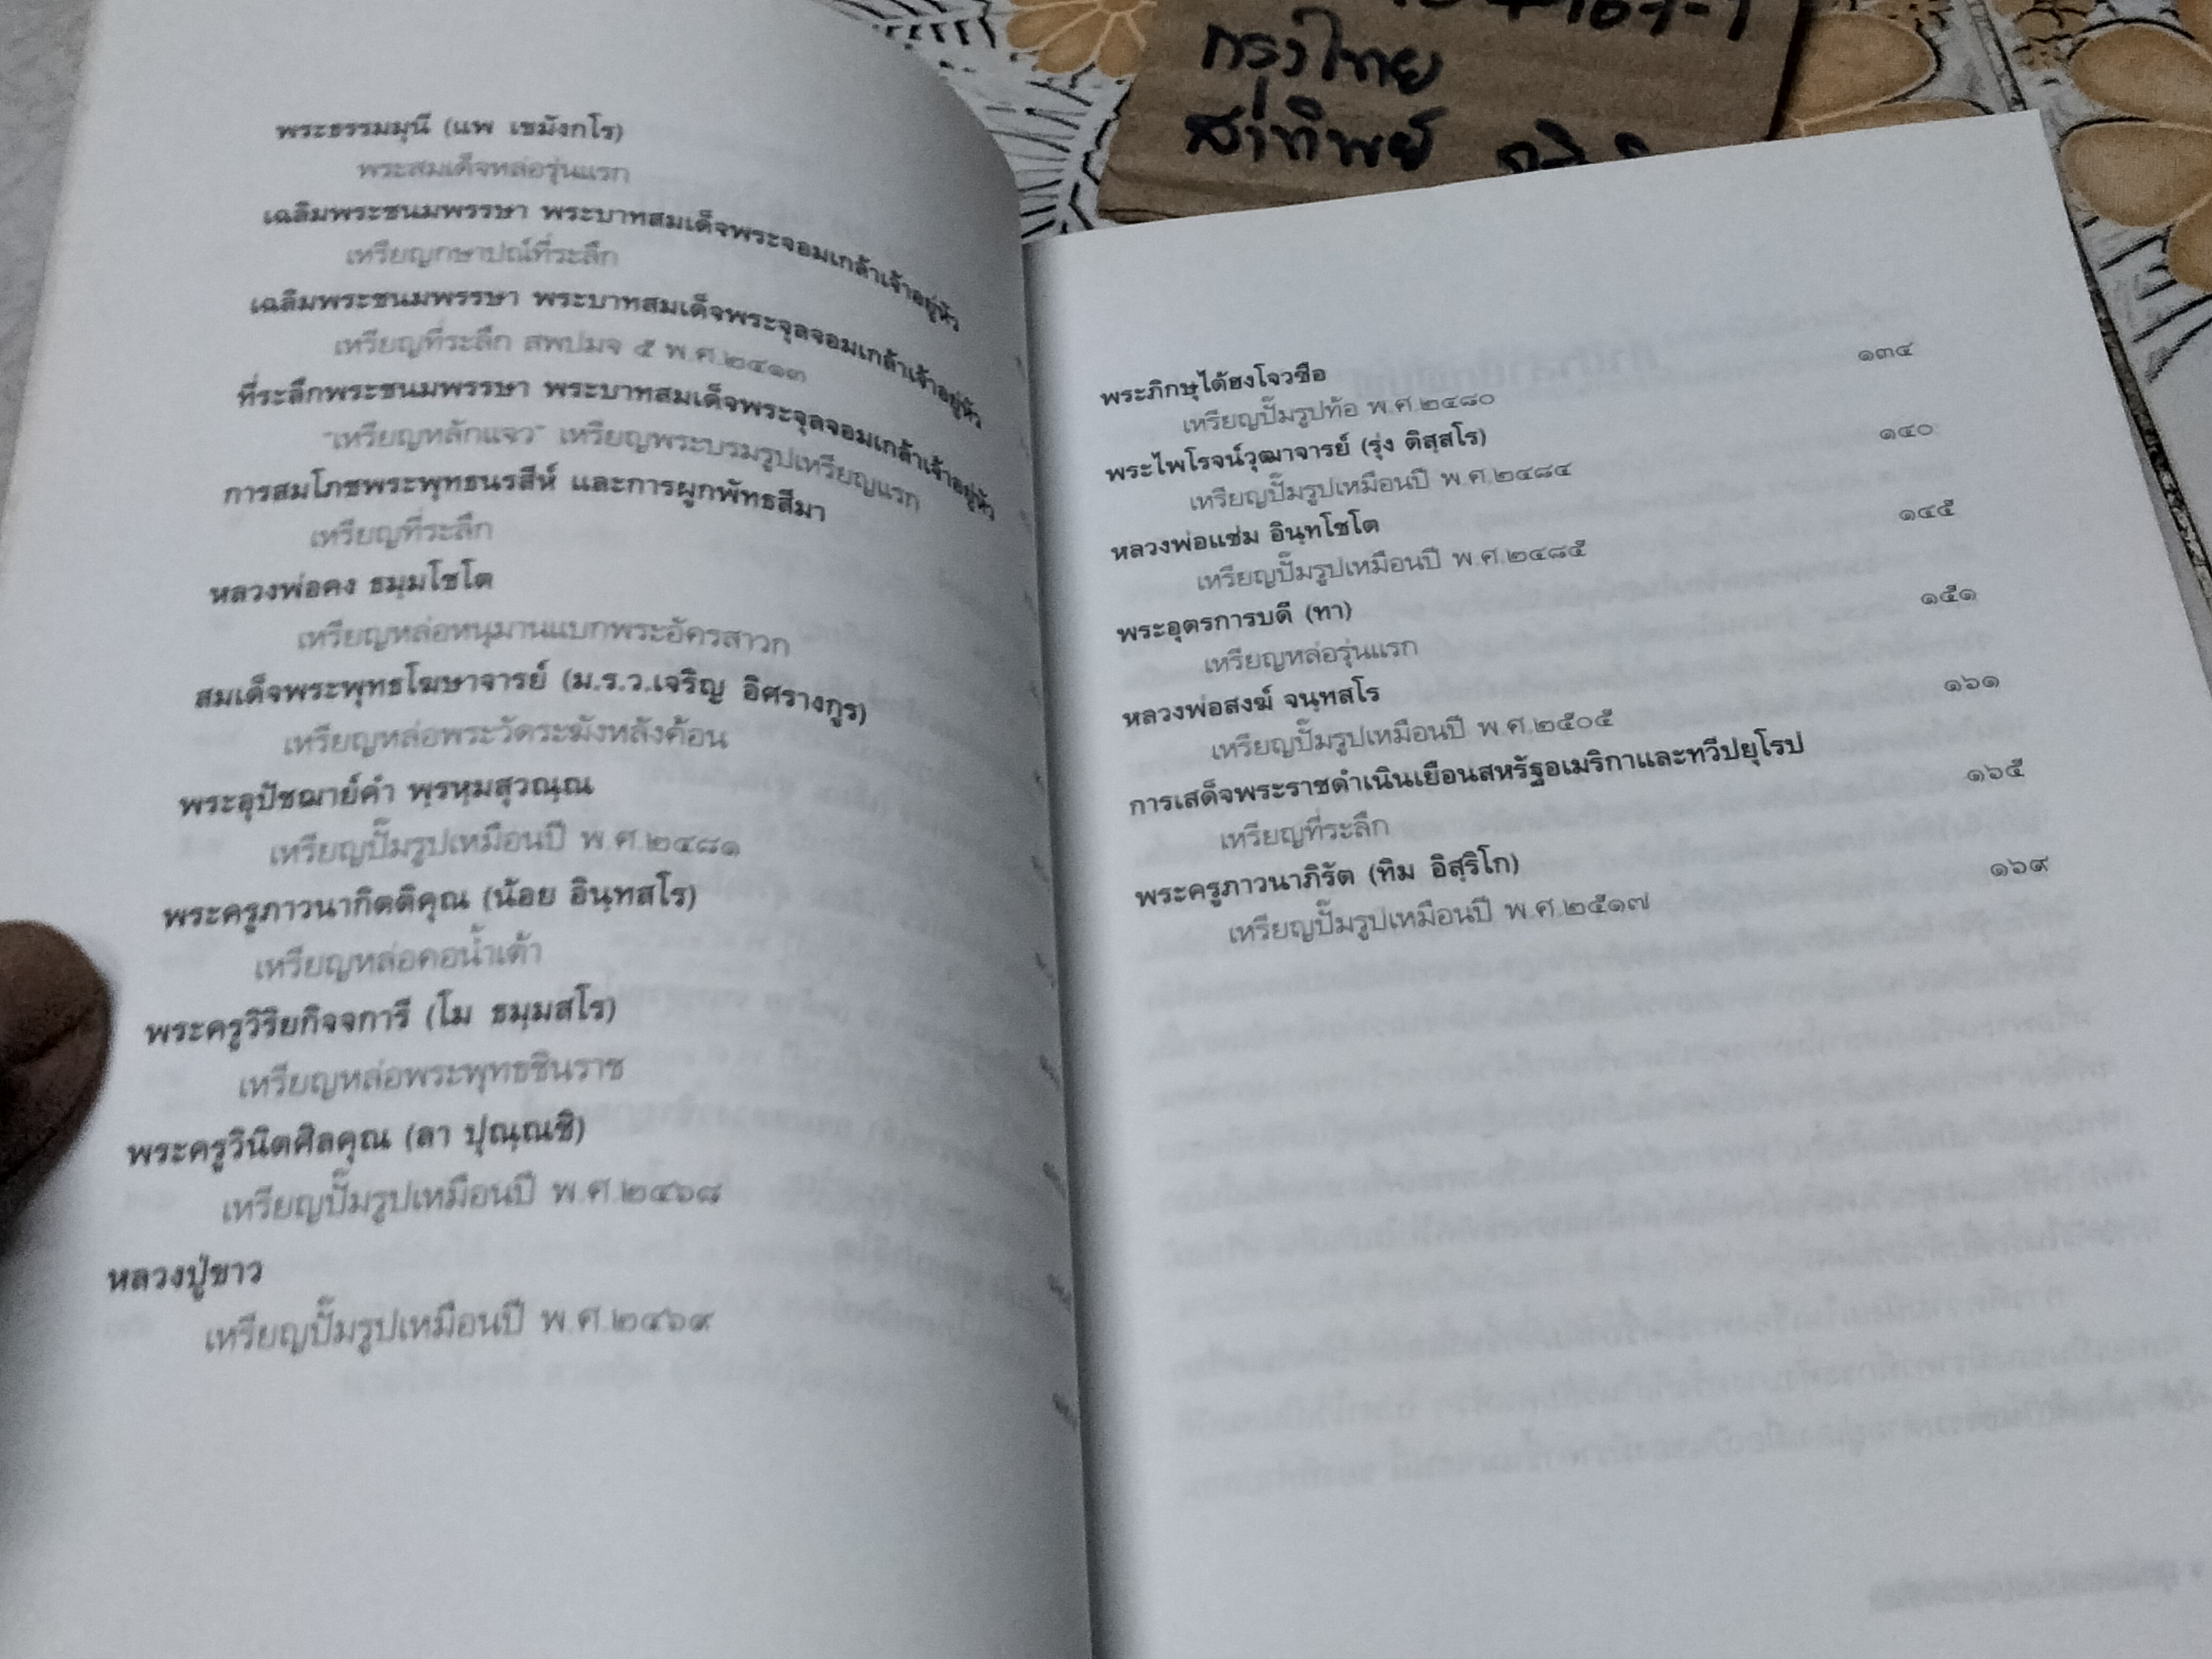 พระธรรมมุนี (แพ เขมังกโร)
พระสมเด็จหล่อรุ่นแรก
เฉลิมพระชนมพรรษา พระบาทสมเด็จพระจอมเกล้าเจ้าอยู่หัว
เหรียญกษาปณ์ที่ระลึก
เฉลิมพระชนมพรรษา พระบาทสมเด็จพระจุลจอมเกล้าเจ้าอยู่หัว
เหรียญที่ระลึก สพปมจ ๕ พ.ศ.๒๔๑๓
ที่ระลึกพระชนมพรรษา พระบาทสมเด็จพระจุลจอมเกล้าเจ้าอยู่หัว
"เหรียญหลักแจว" เหรียญพระบรมรูปเหรียญแรก
การสมโภชพระพุทธนรสีห์ และการผูกพัทธสีมา
เหรียญที่ระลึก
หลวงพ่อคง ธมฺมโชโต
เหรียญหล่อหนุมานแบกพระอัครสาวก
สมเด็จพระพุทธโฆษาจารย์ (ม.ร.ว.เจริญ อิศรางกูร)
เหรียญหล่อพระวัดระฆังหลังค้อน
พระอุปัชฌาย์คำ พฺรหฺมสุวณฺณ
เหรียญปั๊มรูปเหมือนปี พ.ศ.๒๔๘๑
พระครูภาวนากิตติคุณ (น้อย อินฺทสโร)
เหรียญหล่อคอน้ำเต้า
พระครูวิริยกิจจการี (โม ธมฺมสโร)
เหรียญหล่อพระพุทธชินราช
พระครูวินิตศิลคุณ (ลา ปุณฺณชิ)
เหรียญปั๊มรูปเหมือนปี พ.ศ.๒๔๖๘
หลวงปู่ขาว
เหรียญปั๊มรูปเหมือนปี พ.ศ.๒๔๖๙
กรุงไทย
สาทิพย์
พระภิกษุไต้ฮงโจวซือ ๑๓๔
เหรียญปั๊มรูปท้อ พ.ศ.๒๔๘๐
พระไพโรจน์วุฒาจารย์ (รุ่ง ติสฺสโร) ๑๔๐
เหรียญปั๊มรูปเหมือนปี พ.ศ.๒๔๘๔
หลวงพ่อแช่ม อินฺทโชโต ๑๔๕
เหรียญปั๊มรูปเหมือนปี พ.ศ.๒๔๘๕
พระอุตรการบดี (ทา) ๑๕๑
เหรียญหล่อรุ่นแรก
หลวงพ่อสงฆ์ จนฺทสโร ๑๖๑
เหรียญปั๊มรูปเหมือนปี พ.ศ.๒๕๐๕
การเสด็จพระราชดำเนินเยือนสหรัฐอเมริกาและทวีปยุโรป ๑๖๕
เหรียญที่ระลึก
พระครูภาวนาภิรัต (ทิม อิสฺริโก) ๑๖๙
เหรียญปั๊มรูปเหมือนปี พ.ศ.๒๕๑๗